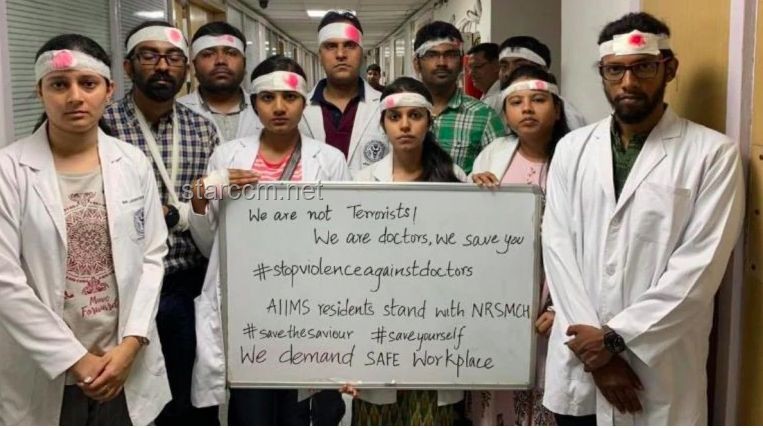 starccm.net
We are not Terrorists!
We are doctors, we save you
#stopviolenceagainstdoctors
AIIMS residents stand with NRSMCH
#savethesaviour #saveyourself
We demand SAFE Workplace